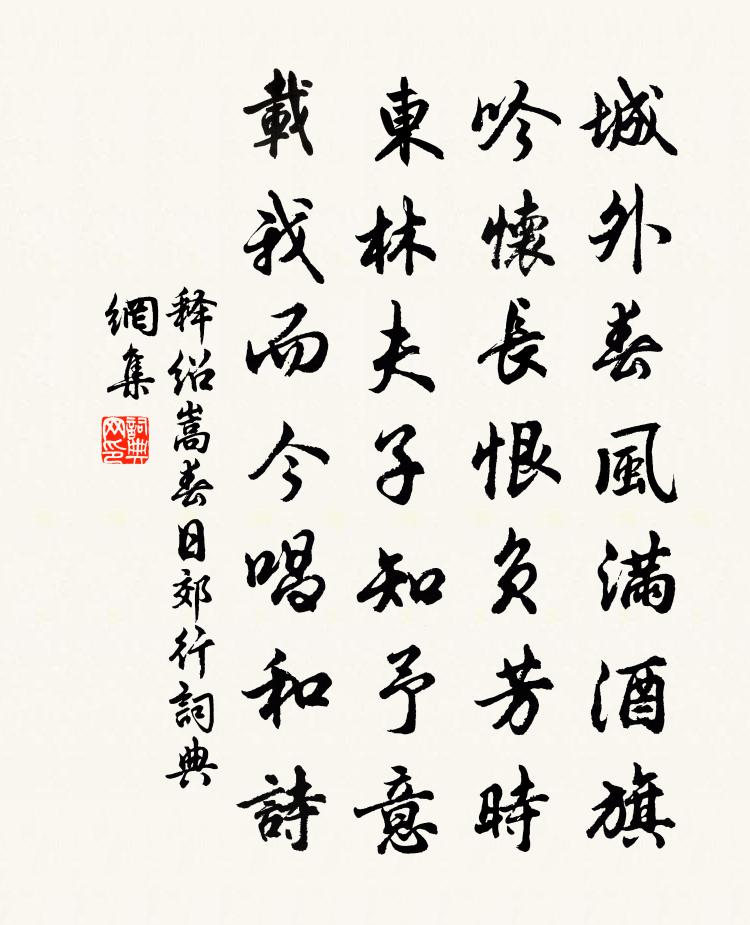 城外春風満酒旗
吟懷長恨負芳時
東林夫子知予意
載我而今唱和詩
释绍嵩春日郊行詞典
網集
詞典網印